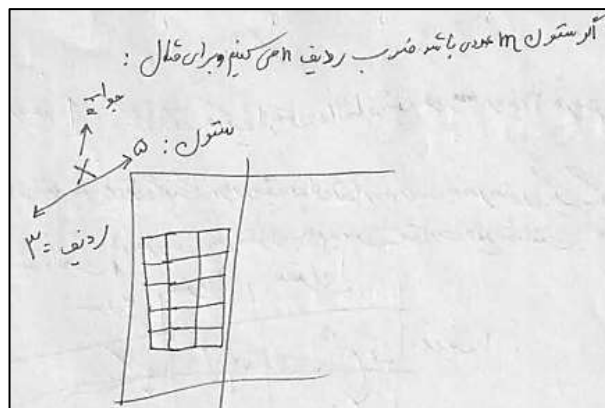 اگر ستون m عددی باشد ضرب ردیف n می کنیم و برای مثال :
جواب =
×
ستون : ۵
ردیف = ۳